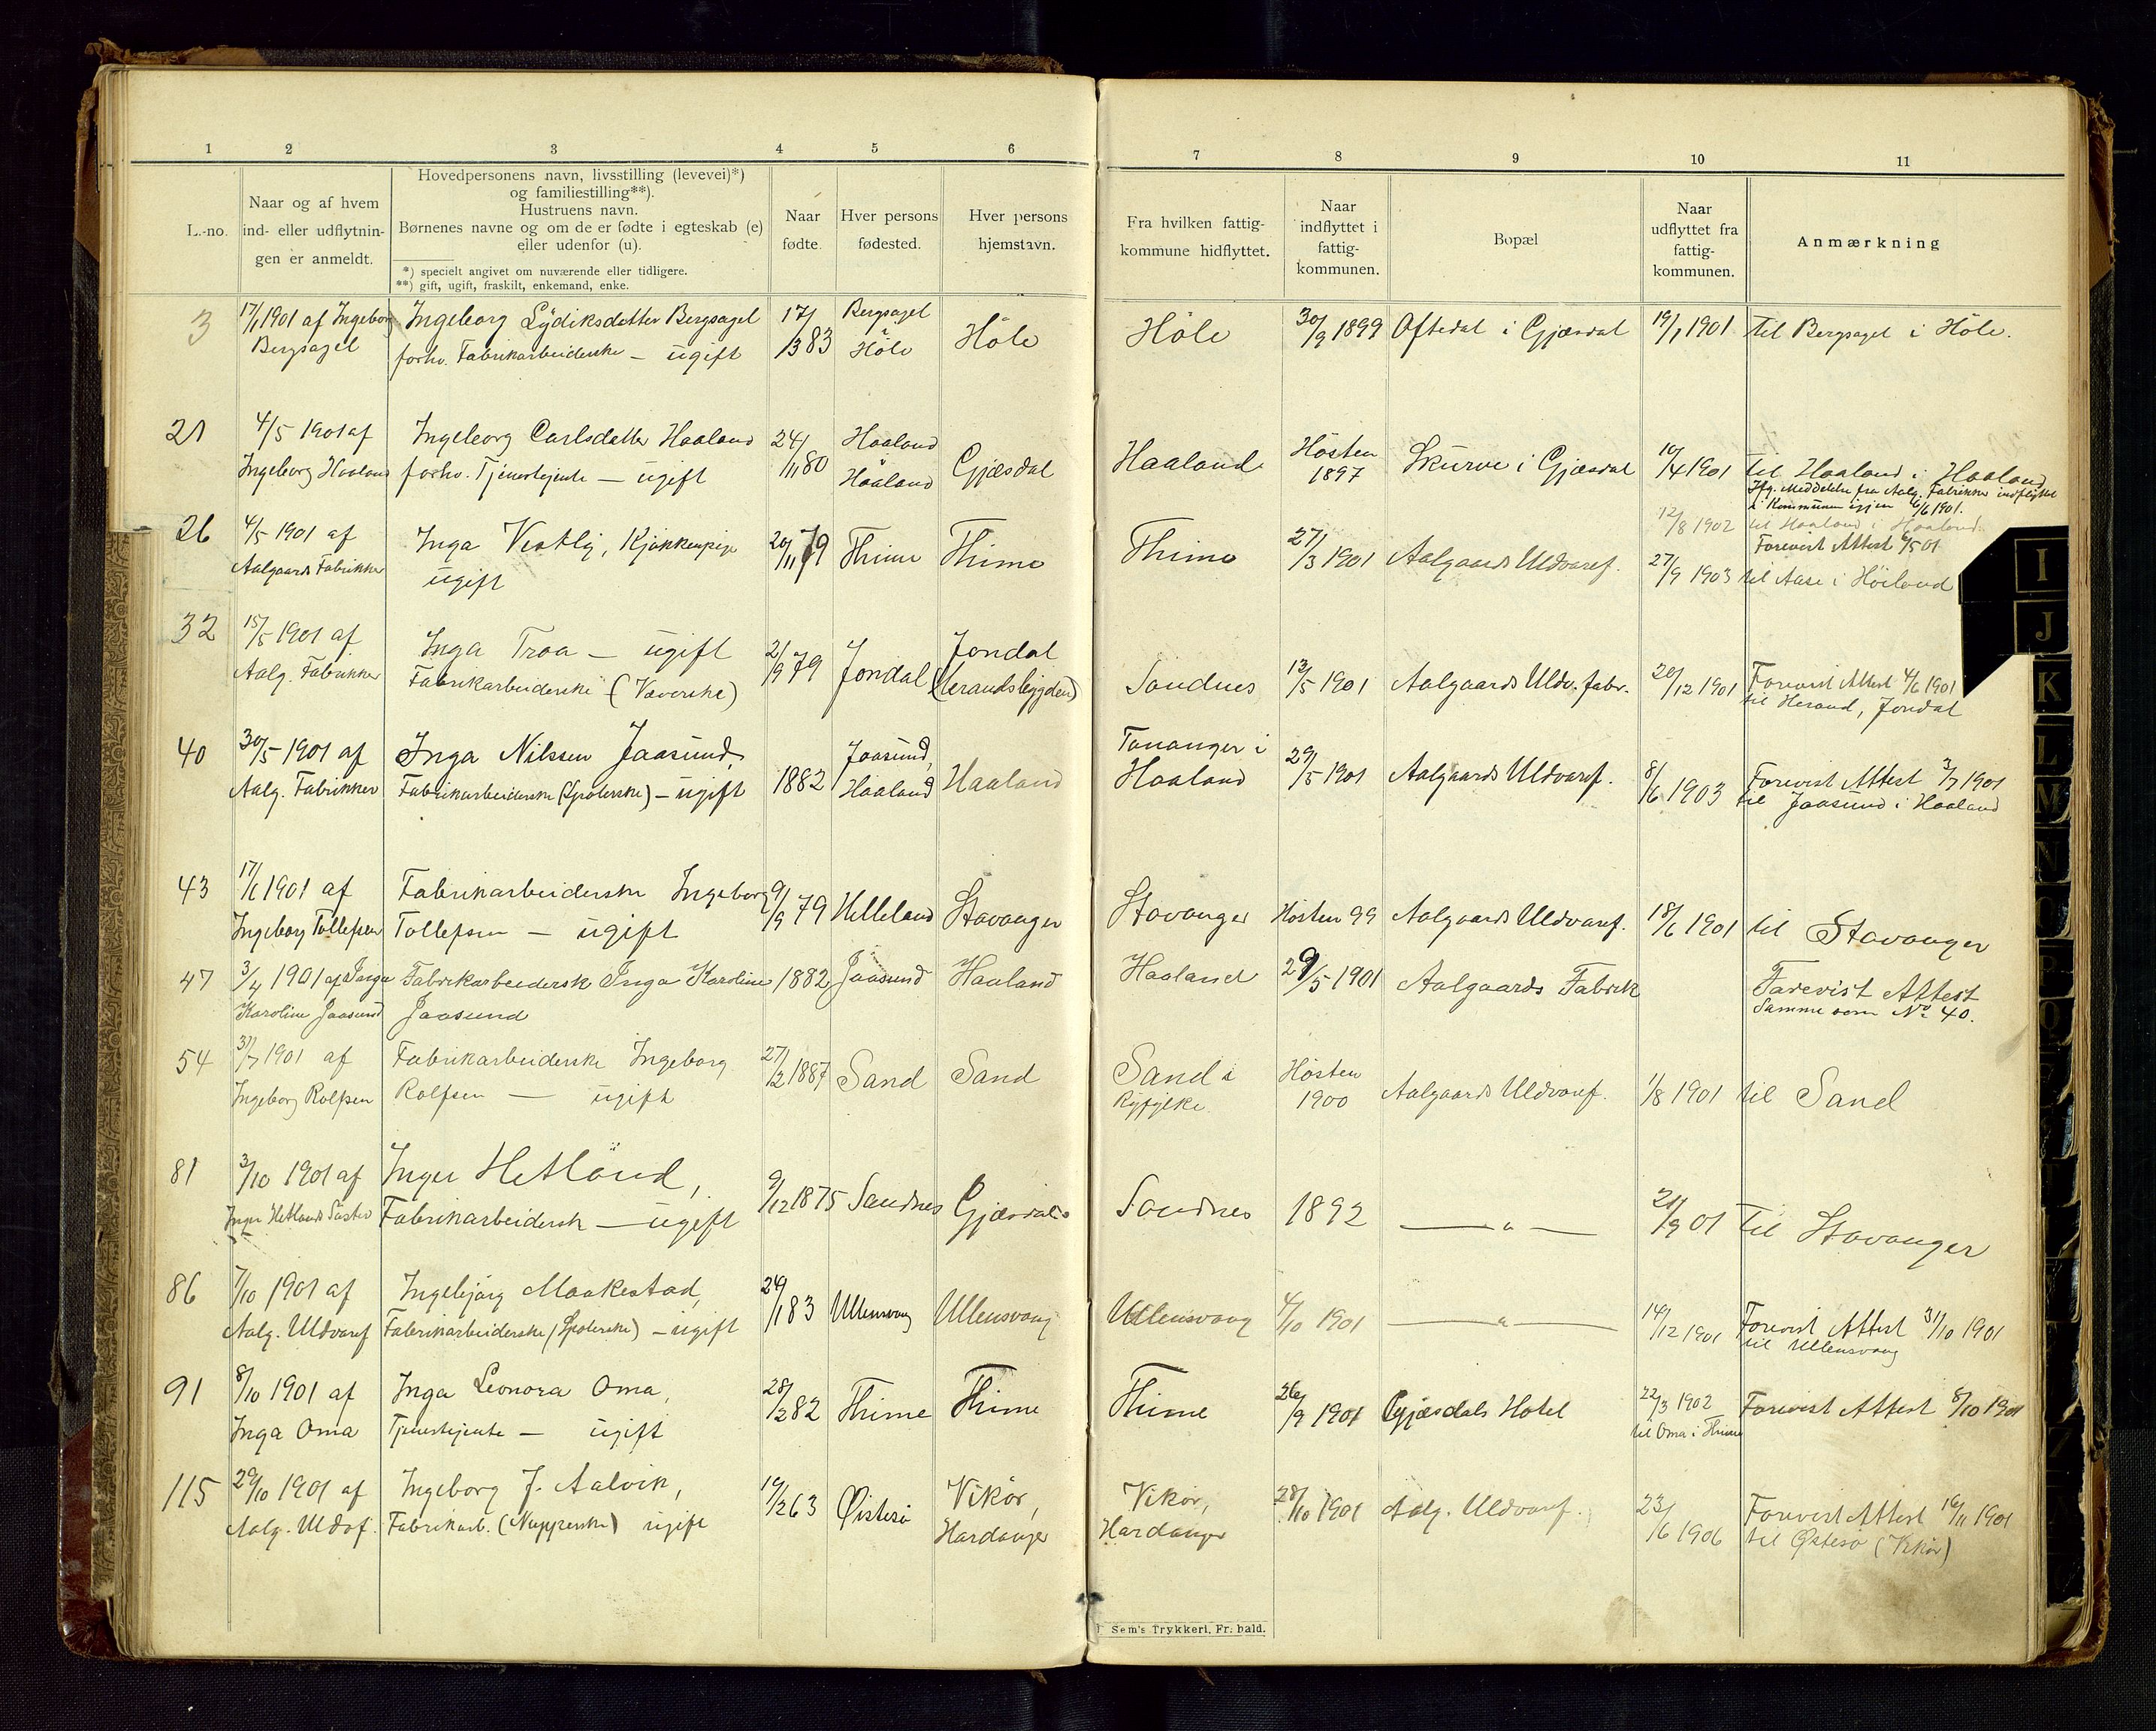 1 2 3 4 5 6 7 8 9 10 11
L.-no.
Naar og af hvem
ind- eller udflytnin-
gen er anmeldt.
Hovedpersonens navn, livsstilling (levevei)*)
og familiestilling**).
Hustruens navn.
Børnenes navne og om de er fødte i egteskab (e)
eller udenfor (u).
*) specielt angivet om nuværende eller tidligere.
**) gift, ugift, fraskilt, enkemand, enke.
Naar
fødte.
Hver persons
fødested.
Hver persons
hjemstavn.
Fra hvilken fattig-
kommune hidflyttet.
Naar
indflyttet i
fattig-
kommunen.
Bopæl
Naar
udflyttet fra
fattig-
kommunen.
Anmærkning
3
17/1 1901 af Ingeborg
Bergsagel
Ingeborg Lydiksdatter Bergsagel
forhv. Fabrikarbeiderske – ugift
17/3 83
Bergsagel
Høle
Høle
Høle
30/9 1899
Oftedal i Gjæsdal
19/1 1901
til Bergsagel i Høle.
21
4/5 1901 af
Ingeborg Haaland
Ingeborg Carlsdatter Haaland
forhv. Tjenestejente – ugift
24/11 80
Haaland
Haaland
Gjæsdal
Haaland
Høsten
1897
Skurve i Gjæsdal
10/4 1901
til Haaland i Haaland
Ifg. Meddelelse fra Aalg. Fabrikker indflyttet
i Kommunen igjen 6/6 1901.
12/8 1902
til Haaland i Haaland.
26
4/5 1901 af
Aalgaards Fabrikker
Inga Vestly, Kjøkkenpige
ugift
20/11 79
Thime
Thime
Thime
27/3 1901
Aalgaards Uldvaref.
27/9 1903
Forevist Attest 6/5 01
til Aase i Høiland
32
15/5 1901 af
Aalg. Fabrikker
Inga Traa – ugift
Fabrikarbeiderske (Væverske)
2/9 79
Jondal
Jondal
(Herandsbygden)
Sandnes
13/5 1901
Aalgaards Uldv. fabr.
20/12 1901
Forevist Attest 4/6 1901
til Herand, Jondal
40
30/5 1901 af
Aalg. Fabrikker
Inga Nilssen Jaasund,
Fabrikarbeiderske (Spolerske) – ugift
1882
Jaasund,
Haaland
Haaland
Tananger i
Haaland
29/5 1901
Aalgaards Uldvaref.
8/6 1903
Forevist Attest 3/7 1901
til Jaasund i Haaland
43
17/6 1901 af
Ingeborg Tollefsen
Fabrikarbeiderske Ingeborg
Tollefsen – ugift
9/9 79
Helleland
Stavanger
Stavanger
Høsten 99
Aalgaards Uldvaref.
18/6 1901
til Stavanger
47
3/7 1901 af Inga
Karoline Jaasund
Fabrikarbeidersk Inga Karoline
Jaasund
1882
Jaasund
Haaland
Haaland
29/5 1901
Aalgaards Fabrik
Forevist Attest
Samme som No 40.
54
31/7 1901 af
Ingeborg Rolfsen
Fabrikarbeiderske Ingeborg
Rolfsen – ugift
27/2 1887
Sand
Sand
Sand i
Ryfylke
Høsten
1900
Aalgaards Uldvaref.
1/8 1901
til Sand
81
3/10 1901 af
Inger Hetlands Søster
Inger Hetland,
Fabrikarbeidersk – ugift
9/12 1875
Sandnes
Gjæsdal
Sandnes
1892
— " —
21/9 01
Til Stavanger
86
7/10 1901 af
Aalg. Uldvaref
Ingebjørg Maakestad,
Fabrikarbeiderske (Spolerske) – ugift
24/1 83
Ullensvang
Ullensvang
Ullensvang
4/10 1901
— " —
14/12 1901
Forevist Attest 31/10 1901
til Ullensvang
91
8/10 1901 af
Inga Oma
Inga Leonora Oma,
Tjenestejente – ugift
28/2 82
Thime
Thime
Thime
26/9 1901
Gjæsdals Hotel
22/3 1902
til Oma i Thime
Forevist Attest 8/10 1901
115
29/10 1901 af
Aalg. Uldvf.
Ingeborg J. Aalvik,
Fabrikarb. (Nupperske) ugift
19/2 63
Østesø
Vikør,
Hardanger
Vikør,
Hardanger
28/10 1901
Aalg. Uldvaref.
23/6 1906
Forevist Attest 16/11 1901
til Østesø (Vikør)
Sem's Trykkeri, Fr: hald.
I
J
K
L
M
N
O
P
Q